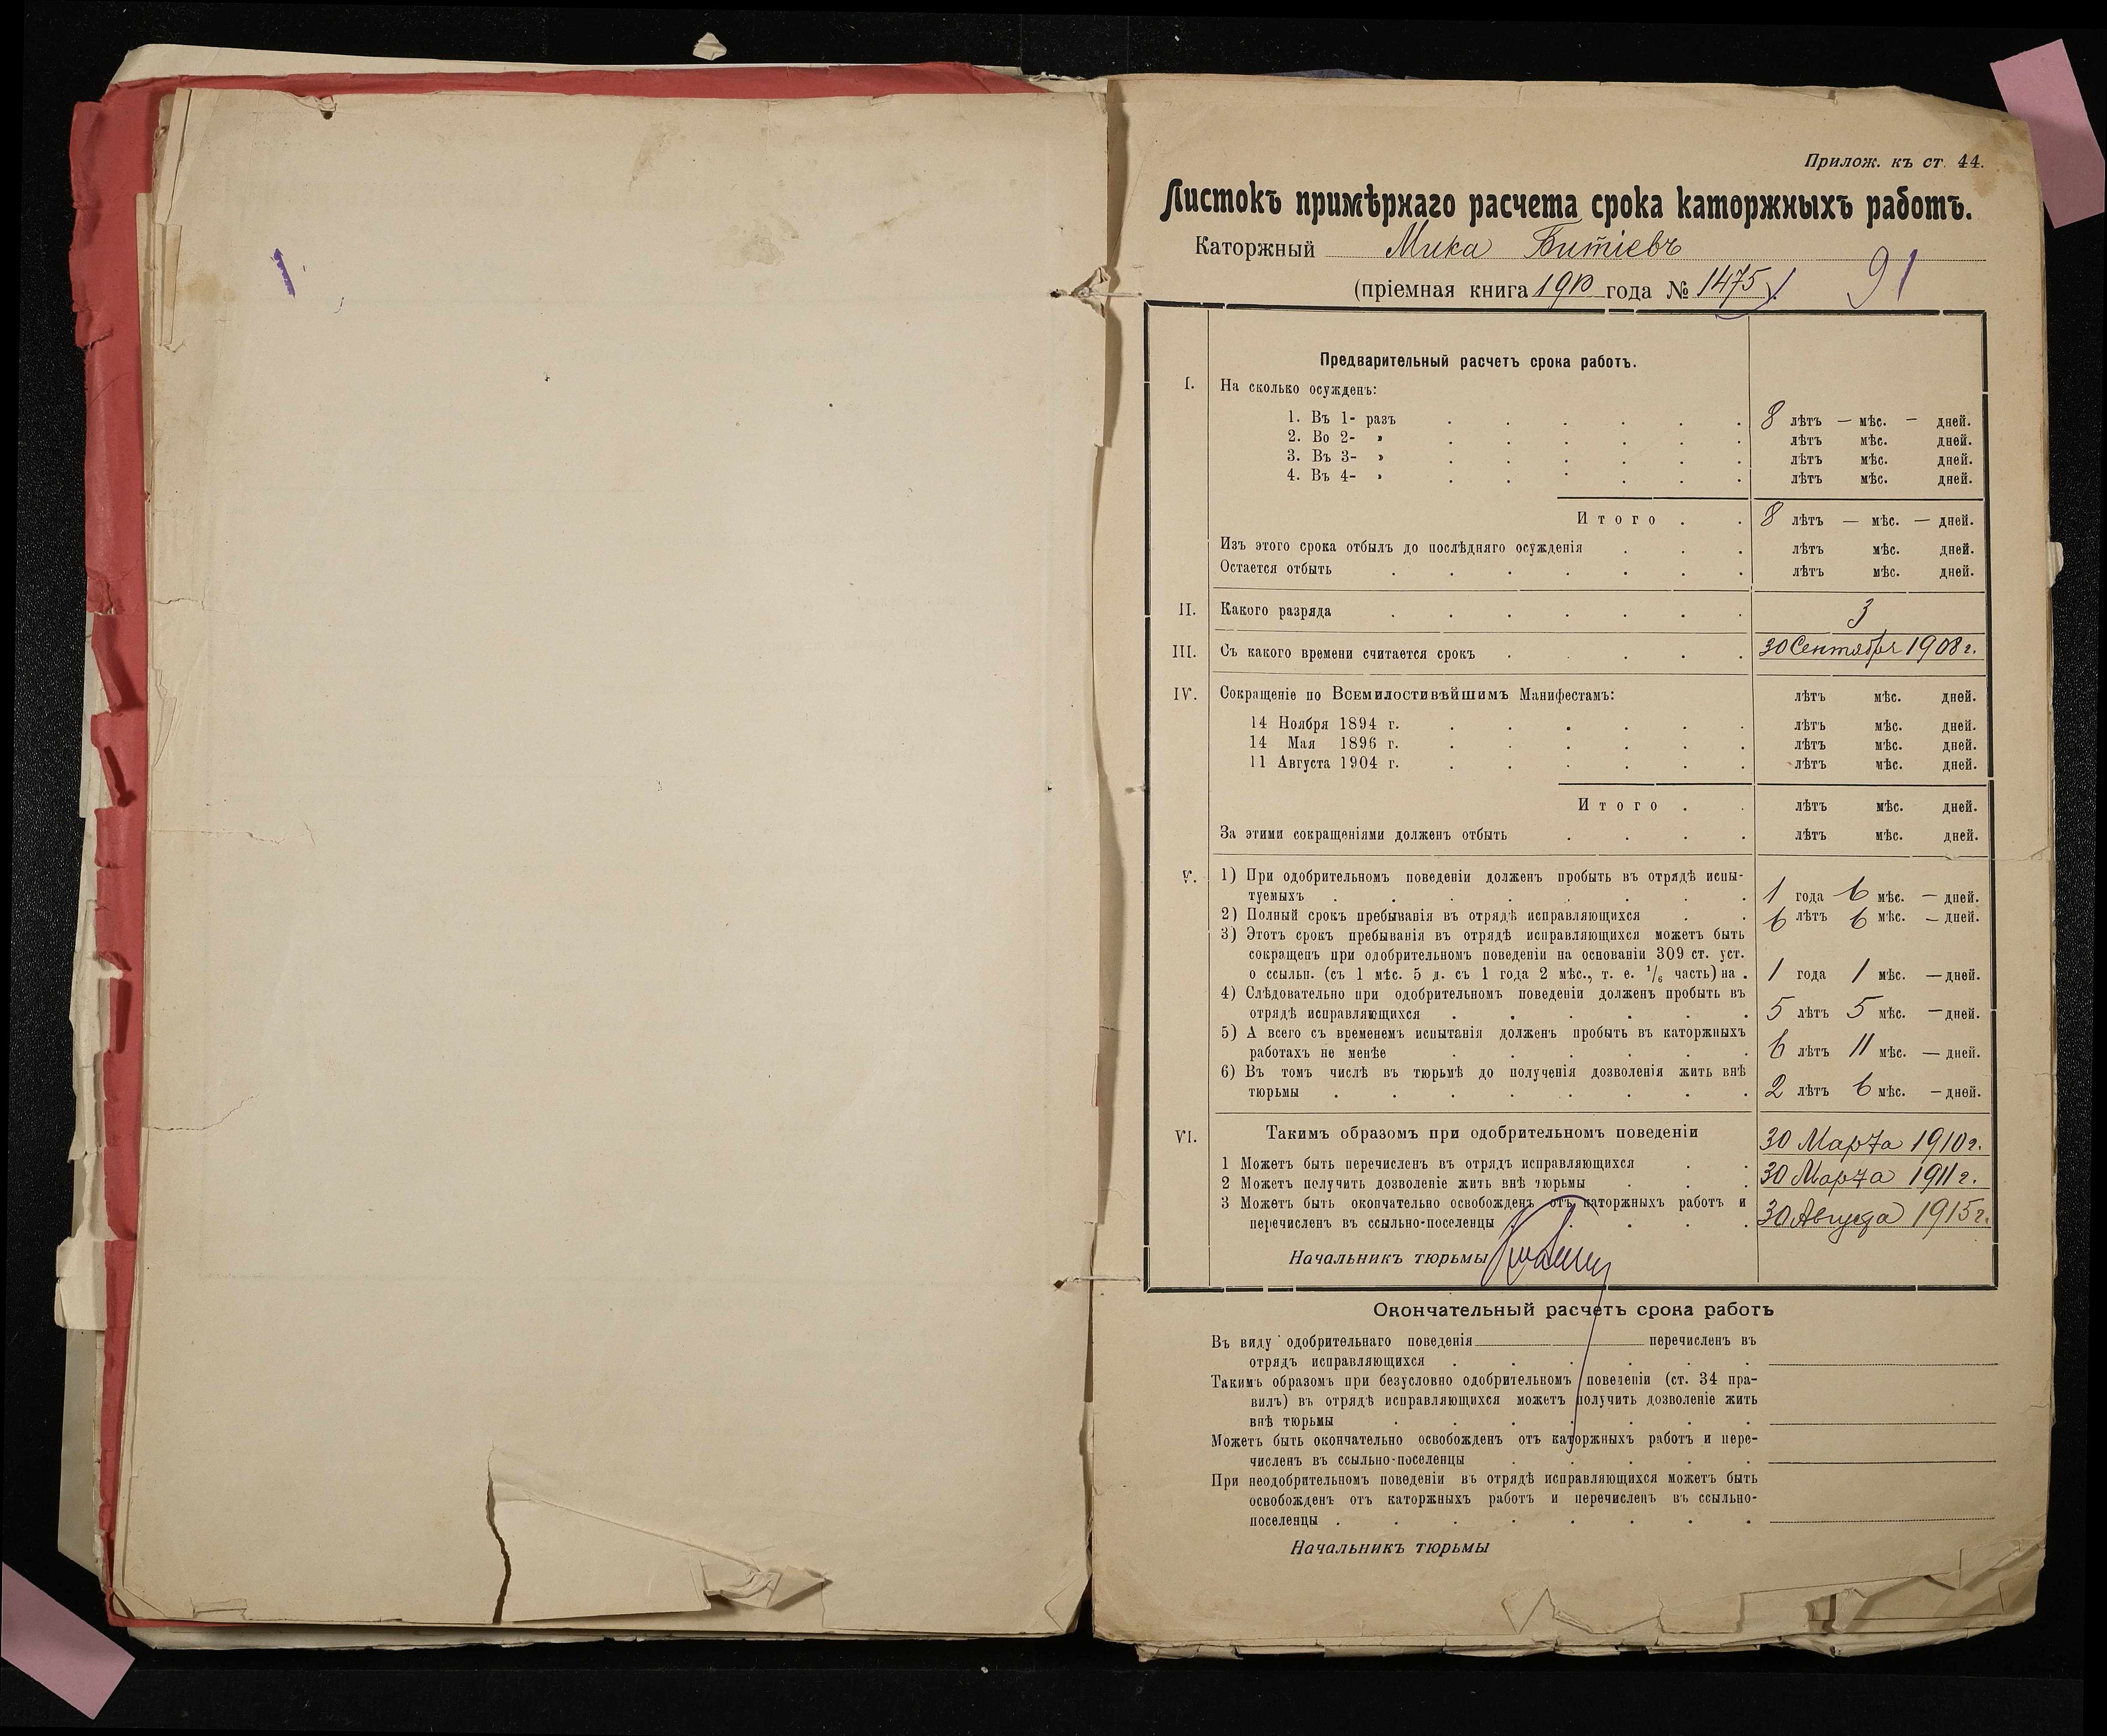 Прилож. къ ст. 44.
Листокъ примѣрнаго расчета срока каторжныхъ работъ.
Каторжный Мика Битіевъ
(пріемная книга 1910 года № 1475) 91
Предварительный расчетъ срока работъ.
I. На сколько осужденъ:
1. Въ 1- разъ 8 лѣтъ — мѣс. — дней.
2. Во 2- » лѣтъ мѣс. дней.
3. Въ 3- » лѣтъ мѣс. дней.
4. Въ 4- » лѣтъ мѣс. дней.
Итого 8 лѣтъ — мѣс. — дней.
Изъ этого срока отбылъ до послѣдняго осужденія лѣтъ мѣс. дней.
Остается отбыть лѣтъ мѣс. дней.
II. Какого разряда 3
III. Съ какого времени считается срокъ 30 Сентября 1908 г.
IV. Сокращеніе по Всемилостивѣйшимъ Манифестамъ: лѣтъ мѣс. дней.
14 Ноября 1894 г. лѣтъ мѣс. дней.
14 Мая 1896 г. лѣтъ мѣс. дней.
11 Августа 1904 г. лѣтъ мѣс. дней.
Итого лѣтъ мѣс. дней.
За этими сокращеніями долженъ отбыть лѣтъ мѣс. дней.
V. 1) При одобрительномъ поведеніи долженъ пробыть въ отрядѣ испы-
туемыхъ 1 года 6 мѣс. — дней.
2) Полный срокъ пребыванія въ отрядѣ исправляющихся 6 лѣтъ 6 мѣс. — дней.
3) Этотъ срокъ пребыванія въ отрядѣ исправляющихся можетъ быть
сокращенъ при одобрительномъ поведеніи на основаніи 309 ст. уст.
о ссыльн. (съ 1 мѣс. 5 д. съ 1 года 2 мѣс., т. е. 1/6 часть) на 1 года 1 мѣс. — дней.
4) Слѣдовательно при одобрительномъ поведеніи долженъ пробыть въ
отрядѣ исправляющихся 5 лѣтъ 5 мѣс. — дней.
5) А всего съ временемъ испытанія долженъ пробыть въ каторжныхъ
работахъ не менѣе 6 лѣтъ 11 мѣс. — дней.
6) Въ томъ числѣ въ тюрьмѣ до полученія дозволенія жить внѣ
тюрьмы 2 лѣтъ 6 мѣс. — дней.
VI. Такимъ образомъ при одобрительномъ поведеніи
1 Можетъ быть перечисленъ въ отрядъ исправляющихся 30 Марта 1910 г.
2 Можетъ получить дозволеніе жить внѣ тюрьмы 30 Марта 1911 г.
3 Можетъ быть окончательно освобожденъ отъ каторжныхъ работъ и
перечисленъ въ ссыльно-поселенцы 30 Августа 1915 г.
Начальникъ тюрьмы
Окончательный расчетъ срока работъ
Въ виду одобрительнаго поведенія перечисленъ въ
отрядъ исправляющихся
Такимъ образомъ при безусловно одобрительномъ поведеніи (ст. 34 пра-
вилъ) въ отрядѣ исправляющихся можетъ получить дозволеніе жить
внѣ тюрьмы
Можетъ быть окончательно освобожденъ отъ каторжныхъ работъ и пере-
численъ въ ссыльно-поселенцы
При неодобрительномъ поведеніи въ отрядѣ исправляющихся можетъ быть
освобожденъ отъ каторжныхъ работъ и перечисленъ въ ссыльно-
поселенцы
Начальникъ тюрьмы